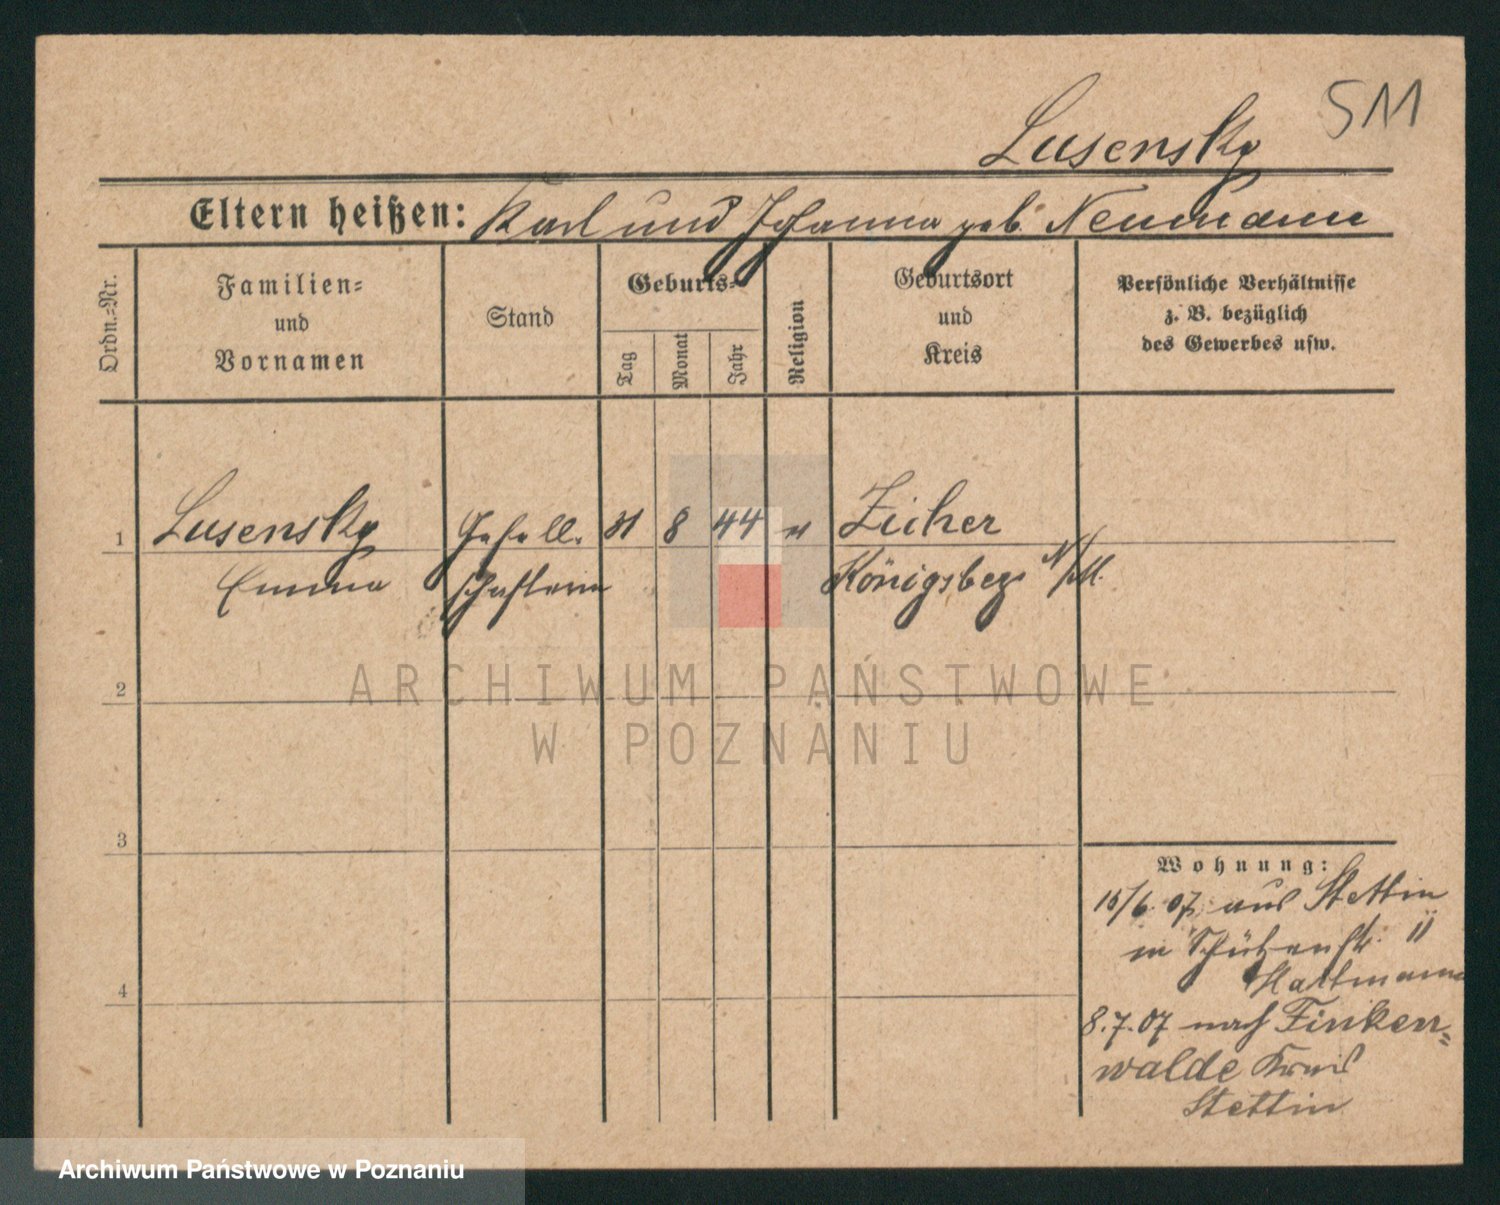 511
Lusensky
Eltern heißen: Karl und Johanna geb. Neumann
Ordn.-Nr.
Familien-
und
Vornamen
Stand
Geburts-
Tag
Monat
Jahr
Religion
Geburtsort
und
Kreis
Persönliche Verhältnisse
z. B. bezüglich
des Gewerbes usw.
1 Lusensky Gesell. 31 8 44 Zicher
Emma schafterin Königsbeg N/M.
2
3
4
Wohnung:
15/6. 07 aus Stettin
in Schützenstr. 11
Hartmann
8.7.07 nach Finken-
walde Kreis
Stettin
ARCHIWUM PAŃSTWOWE
W POZNANIU
Archiwum Państwowe w Poznaniu